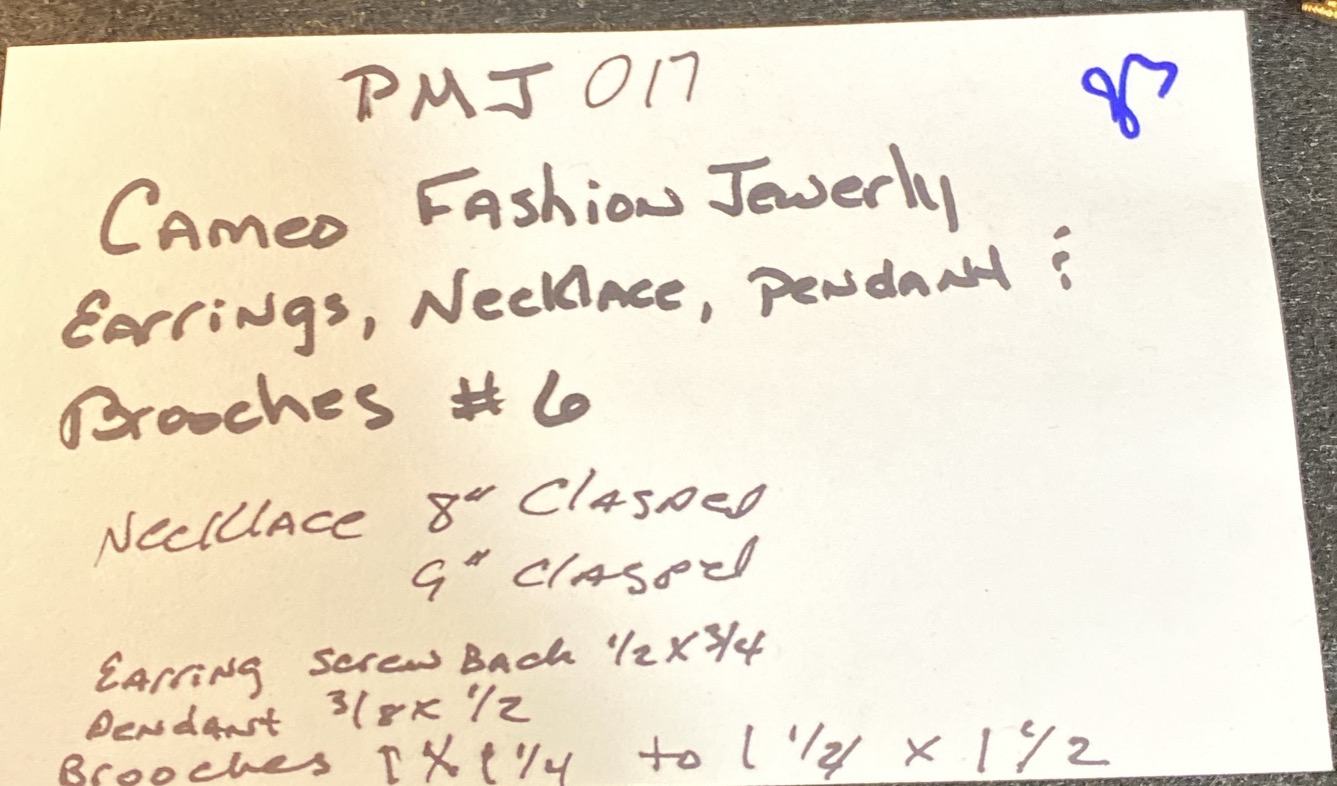 PMJ 017
87
Cameo Fashion Jewerly
Earrings, Necklace, Pendant &
Brooches # 6
Necklace 8" Clasped
9" Clasped
Earring Screw Back 1/2 X 3/4
Pendant 3/8 x 1/2
Brooches 1 X 1 1/4 to 1 1/2 x 1 1/2